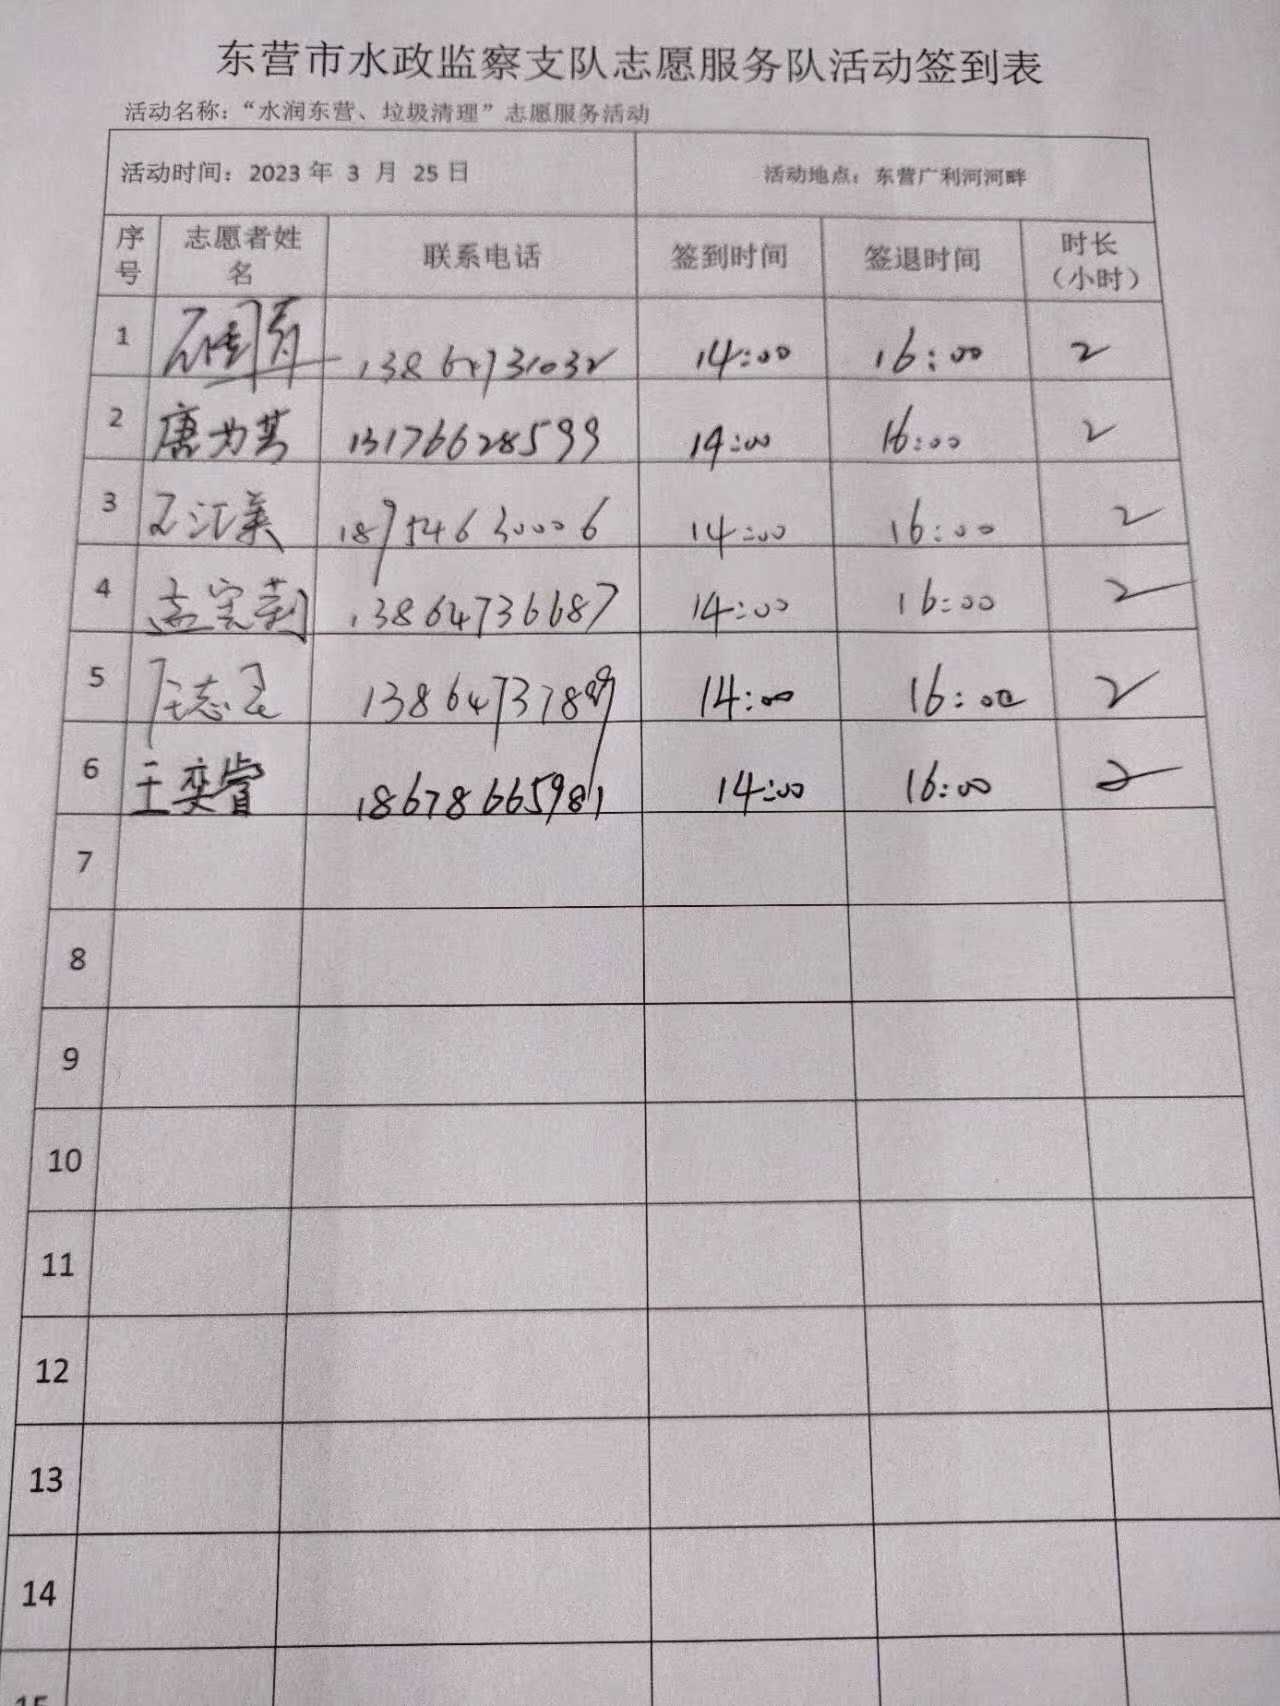 东营市水政监察支队志愿服务队活动签到表
活动名称：“水润东营、垃圾清理”志愿服务活动
活动时间：2023 年 3 月 25 日 活动地点：东营广利河河畔
序号 志愿者姓名 联系电话 签到时间 签退时间 时长（小时）
1 13864731032 14:00 16:00 2
2 唐为芳 13176628599 14:00 16:00 2
3 王江美 18954630006 14:00 16:00 2
4 孟宪利 13864736687 14:00 16:00 2
5 14:00 16:00 2
6 王奕睿 18678665981 14:00 16:00 2
7
8
9
10
11
12
13
14
15